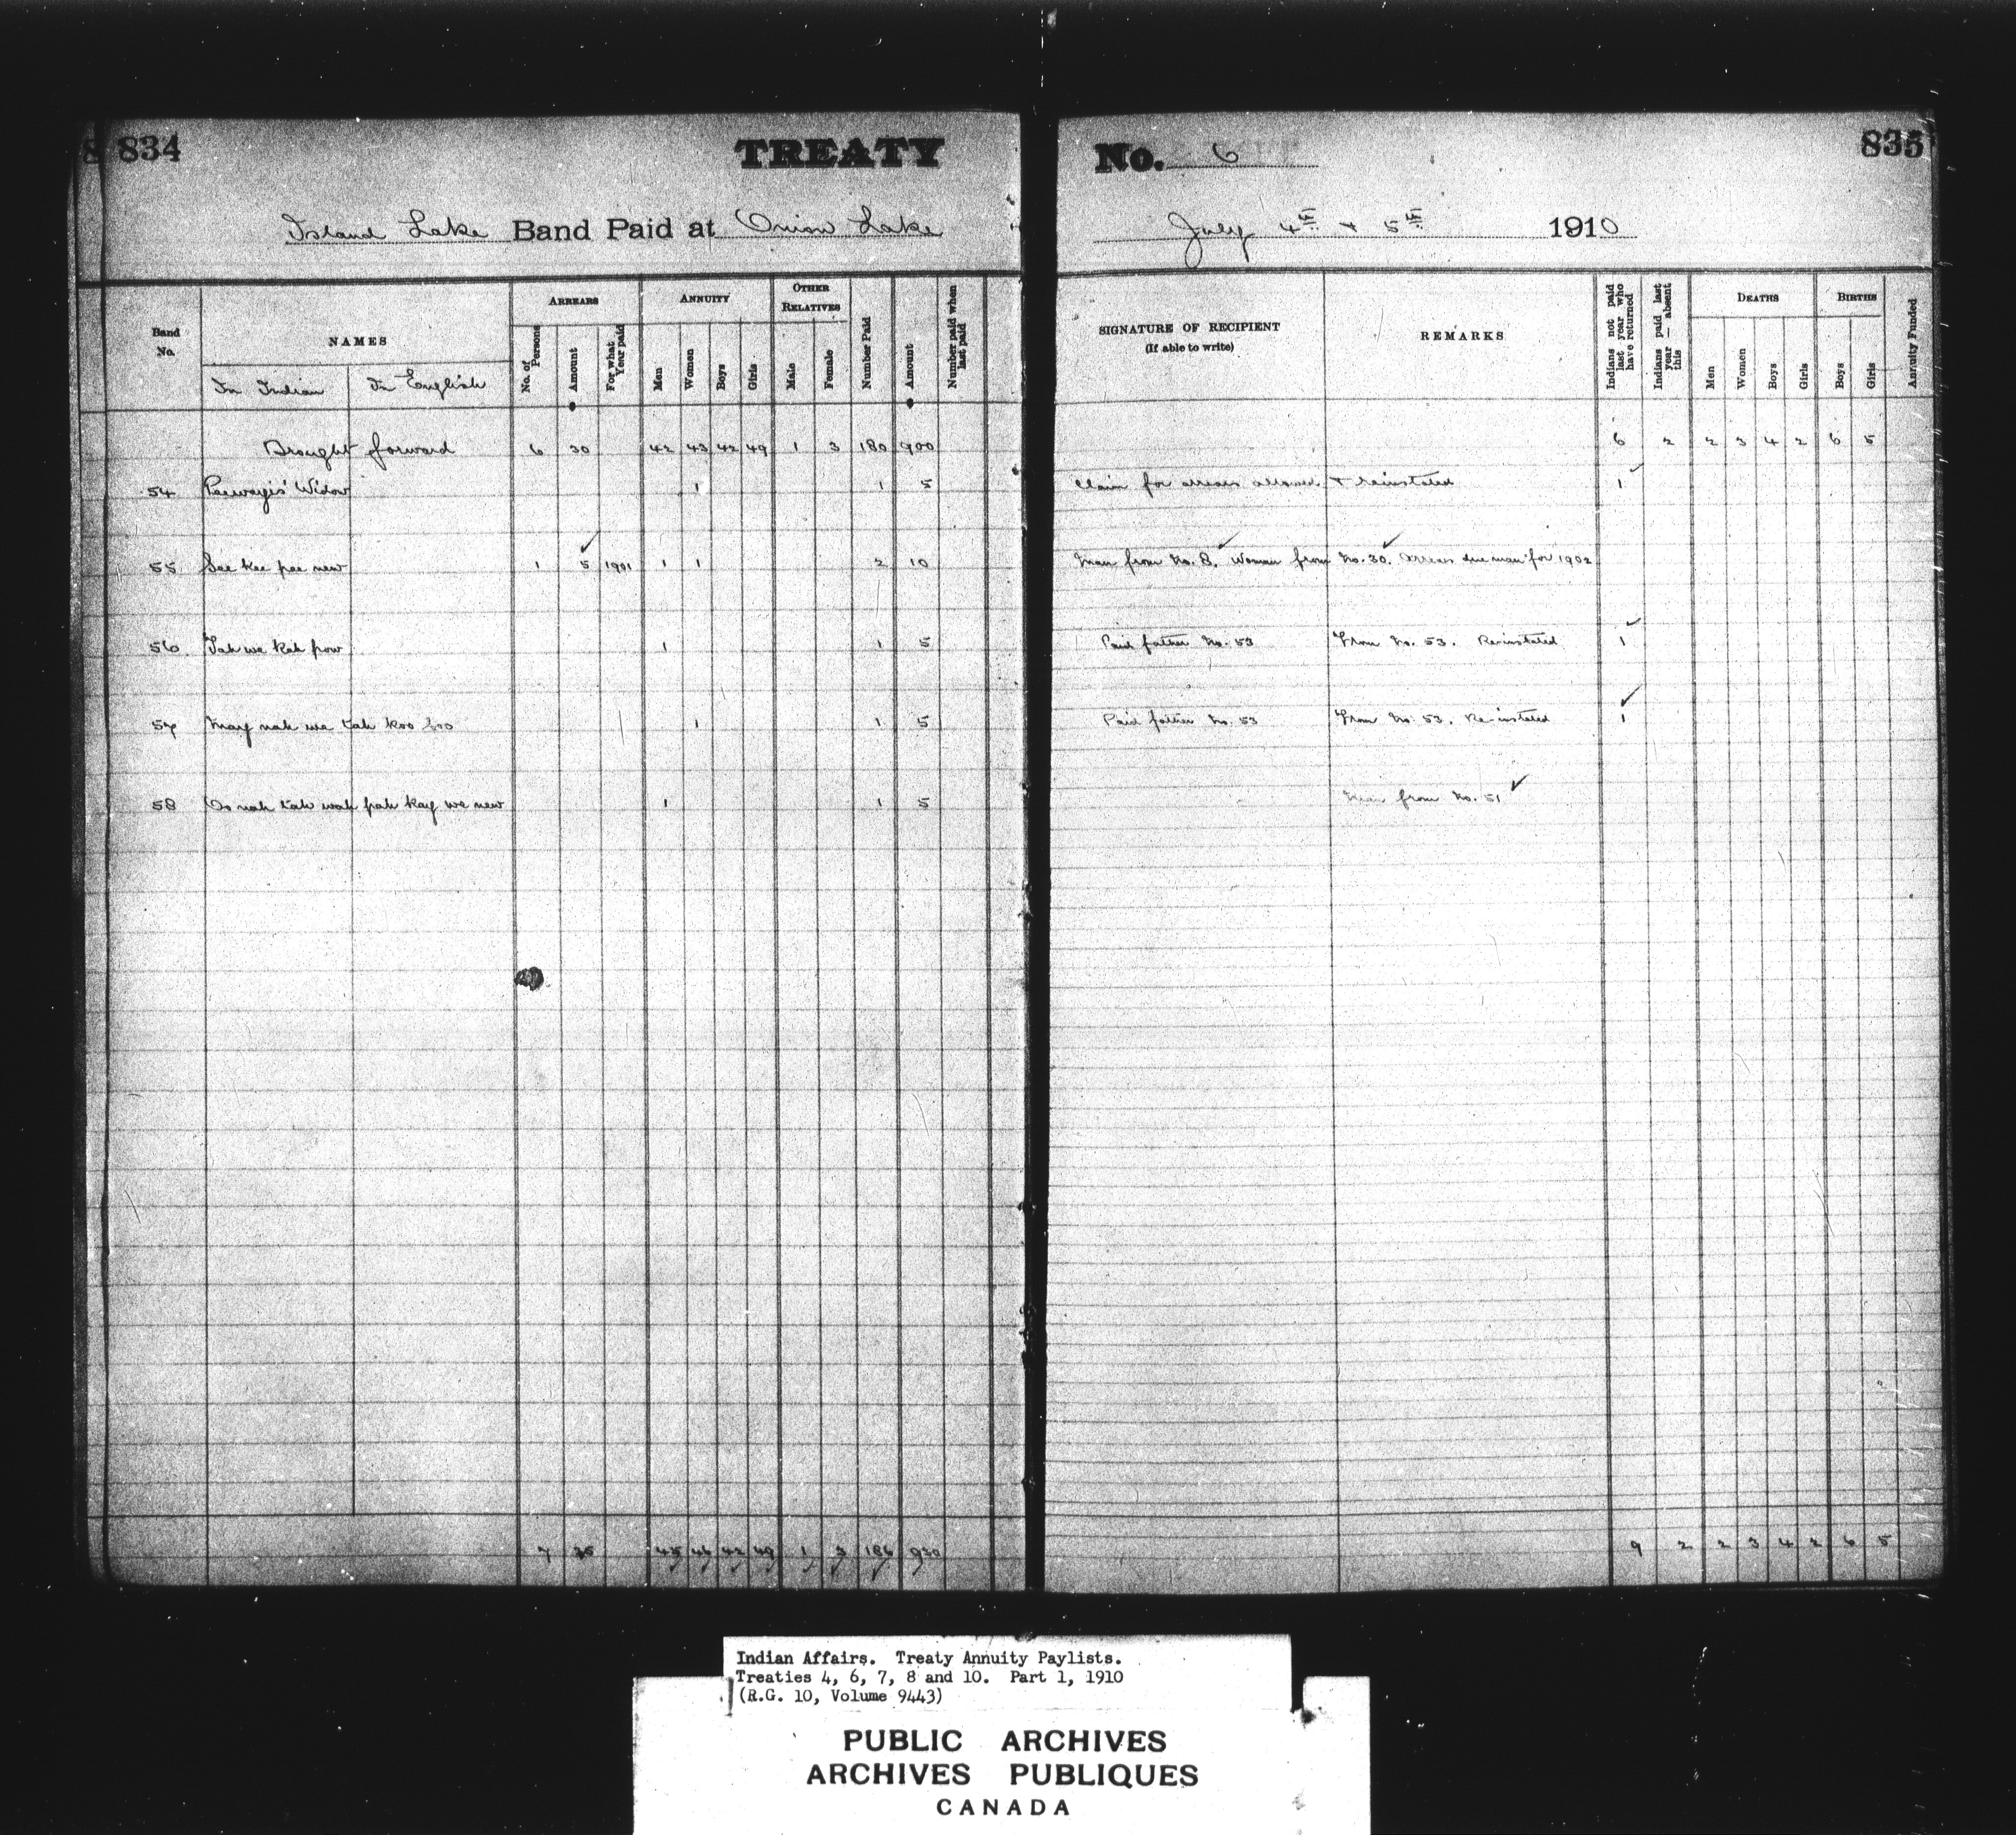 834 TREATY No. 6 835
Island Lake Band Paid at Onion Lake July 4th & 5th 1910
Band No. NAMES ARREARS ANNUITY OTHER RELATIVES Number Paid Amount Number paid when last paid SIGNATURE OF RECIPIENT (If able to write) REMARKS Indians not paid last year who have returned Indians paid last year — absent this DEATHS BIRTHS Annuity Funded
In Indian In English No. of Persons Amount For what Year paid Men Women Boys Girls Male Female Men Women Boys Girls Boys Girls
Brought forward 6 30 42 43 42 49 1 3 180 900 6 2 2 3 4 2 6 5
54 Peewayis' Widow 1 1 5 Claim for arrears allowed & reinstated 1
55 See kee pee new 1 5 1901 1 1 2 10 Man from No. 8. Woman from No. 30. Arrears due man for 1902
56 Tah we kah pow 1 1 5 Paid father No. 53 From No. 53. Re-instated 1
57 May nah we tah koo soo 1 1 5 Paid father No. 53 From No. 53. Re-instated 1
58 Oo nah tah wah pah kay we new 1 1 5 Man from No. 51
7 35 45 46 42 49 1 3 186 930 9 2 2 3 4 2 6 5
Indian Affairs. Treaty Annuity Paylists.
Treaties 4, 6, 7, 8 and 10. Part 1, 1910
(R.G. 10, Volume 9443)
PUBLIC ARCHIVES
ARCHIVES PUBLIQUES
CANADA